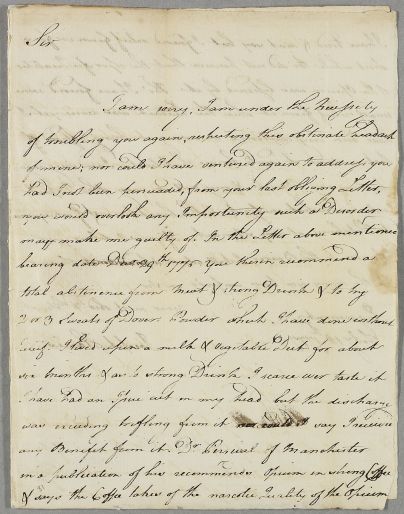 Sir
I am sorry, I am under the Necessity
of troubling you again, respecting this obstinate headach
of mine; nor could I have ventured again to address you
had I not been perswaded, from your last obliging Letter,
you would overlook any Importunity such a Disorder
may make me guilty of. In the Letter above mentioned
bearing date 29th 1775 You therein recommend a
total abstinence from Meat & strong Drinks & to try
2 or 3 Sweats of Dovers Powder which I have done without
I lived upon a milk & vegetable Diet for about
six months & as to strong Drink I scarce ever taste it
I have had an Issue cut in my head but the discharge
was exceeding trifling from it nor could I say I received
any Benefit from it. Dr Percival of Manchester
in a publication of his recommends Opium in strong Coffee
& says the Coffee takes of the narcotic Quality of the Opium